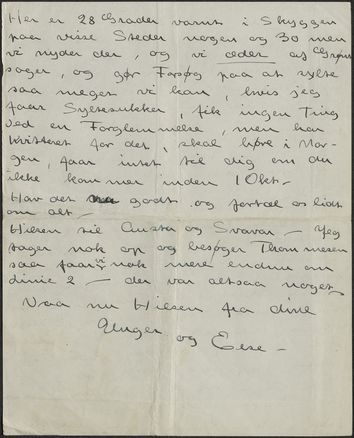 Her er 28 Grader varmt i Skyggen
paa visse Steder nogen og 30 men
vi nyder det, og vi æder af Grønt
sager, og gør Forsøg paa at sylte
saa meget vi kan, hvis jeg
faar Syltesukker, fik ingen Ting
ved en Forglemmelse, men har
kvitteret for det, skal høre i Mor-
gen, faar intet til dig om du
ikke kommer inden 1 Okt.-
Hav det godt og fortæl os lidt
om alt -
Hilsen til Auster og Svavar - Jeg
tager nok op og besøger Thommesen
saa faar vi nok mere endnu om
Linie 2 - der var altsaa noget -
Vaa nu Hilsen fra dine
Unger og Else -